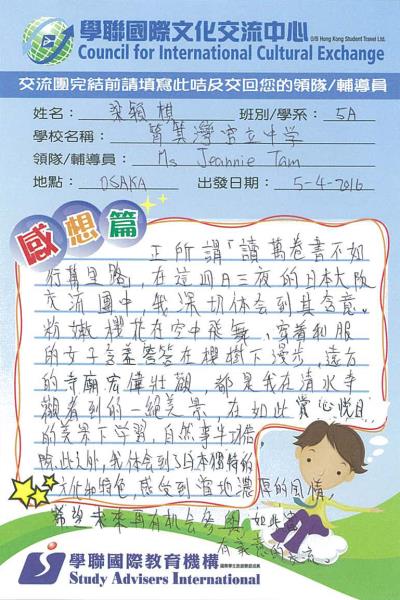 學聯國際文化交流中心
O/B Hong Kong Student Travel Ltd.
Council for International Cultural Exchange
交流團完結前請填寫此咭及交回您的領隊/輔導員
姓名： 梁穎想 班別/學系： 5A
學校名稱： 筲箕灣官立中學
領隊/輔導員： Ms Jeannie Tam
地點： OSAKA 出發日期： 5-4-2016
感想篇
正所謂「讀萬卷書不如
行萬里路」，在這四日三夜的日本大阪
交流團中，我深切体会到其含意。
粉嫩櫻花在空中飛舞、穿着和服
的女子在櫻樹下漫步，遠方
的寺廟宏偉壯觀，都是我在清水寺
觀看到的一絕美景。在如此賞心悅目
的美景下学習，自然事半功倍。
除此之外，我体会到了日本獨特的
文化和特色，感受到當地濃厚的風情。
希望未來再有机会參與如此
有意義的交流。
學聯國際教育機構
Study Advisers International